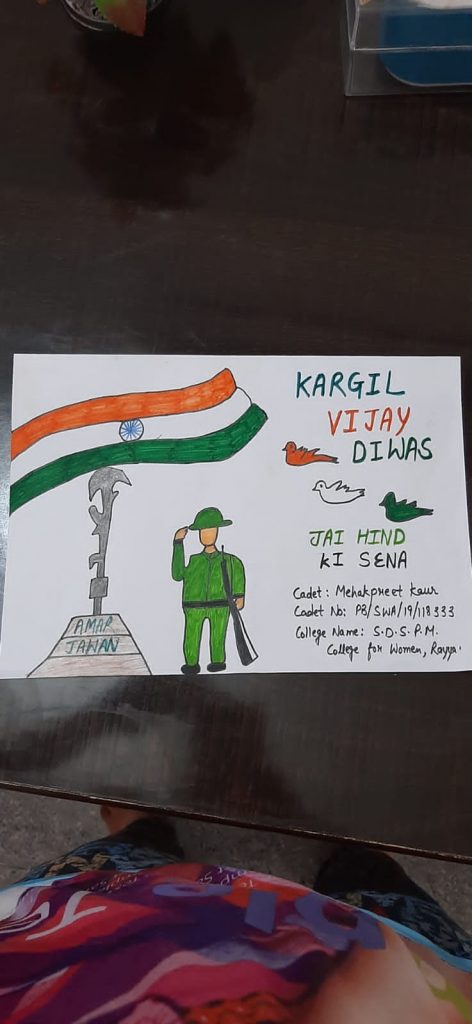 KARGIL
VIJAY
DIWAS
JAI HIND
KI SENA
Cadet: Mehakpreet Kaur
Cadet No: PB/SWA/19/118333
College Name: S.D.S.P.M.
College for Women, Rayya.
AMAR
JAWAN